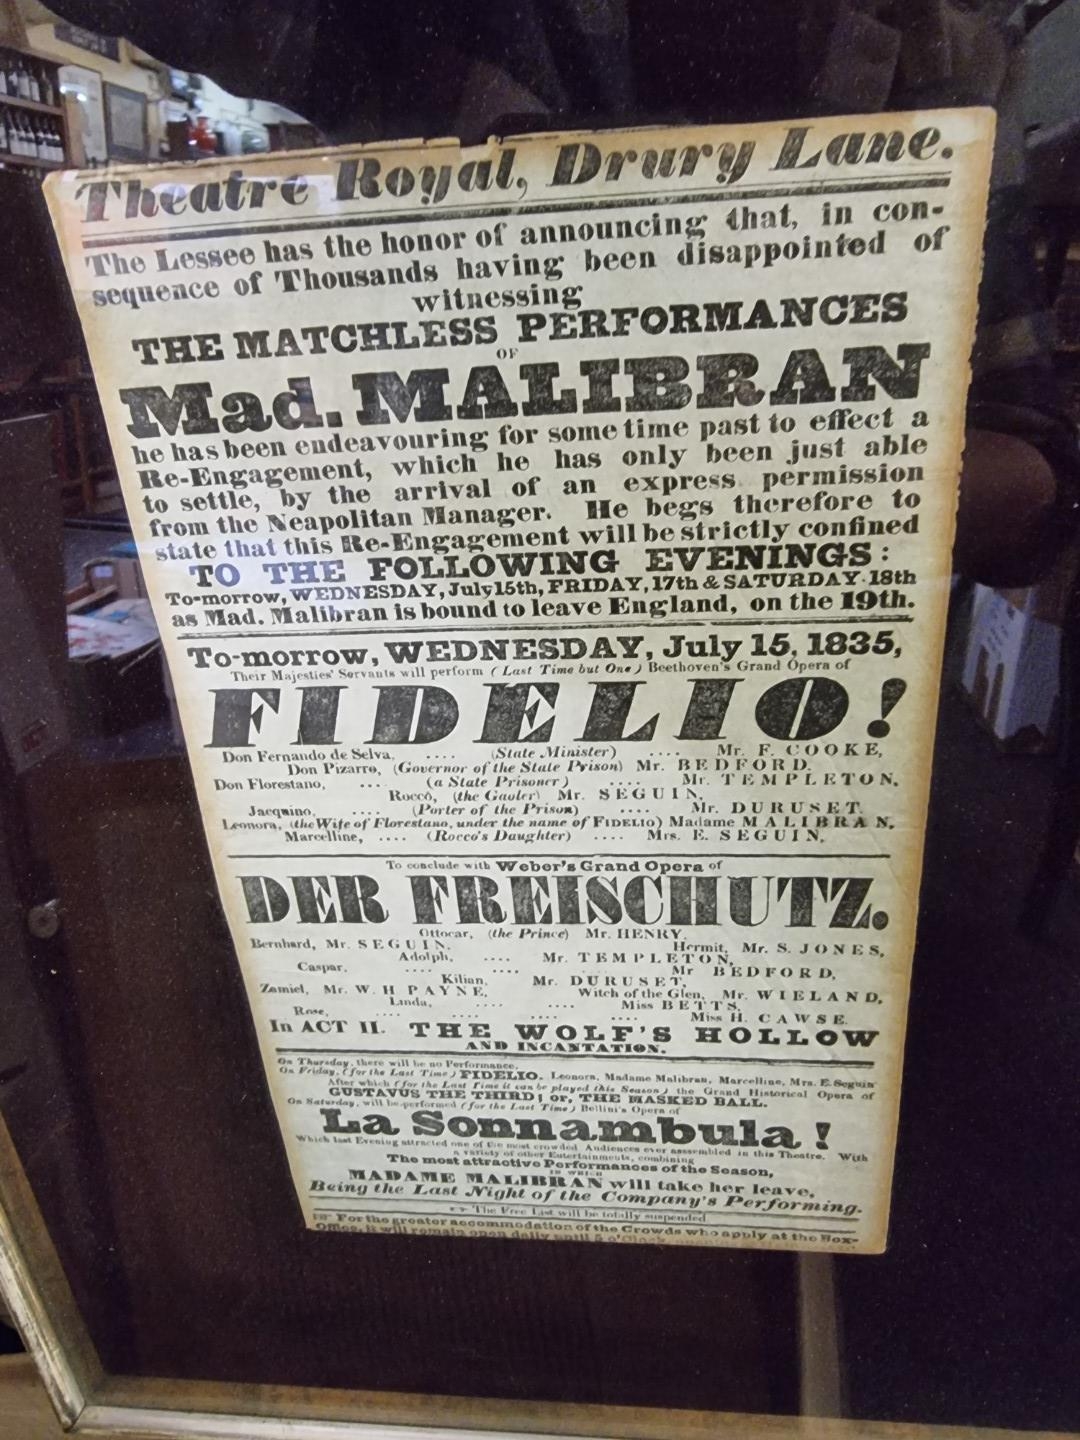 Theatre Royal, Drury Lane.
The Lessee has the honor of announcing that, in con-
sequence of Thousands having been disappointed of
witnessing
THE MATCHLESS PERFORMANCES
OF
Mad. MALIBRAN
he has been endeavouring for some time past to effect a
Re-Engagement, which he has only been just able
to settle, by the arrival of an express permission
from the Neapolitan Manager. He begs therefore to
state that this Re-Engagement will be strictly confined
TO THE FOLLOWING EVENINGS:
To-morrow, WEDNESDAY, July 15th, FRIDAY, 17th & SATURDAY 18th
as Mad. Malibran is bound to leave England, on the 19th.
To-morrow, WEDNESDAY, July 15, 1835,
Their Majesties' Servants will perform (Last Time but One) Beethoven's Grand Opera of
FIDELIO!
Don Fernando de Selva, .... (State Minister) .... Mr. F. COOKE,
Don Pizarro, (Governor of the State Prison) Mr. BEDFORD.
Don Florestano, .... (a State Prisoner) .... Mr. TEMPLETON,
Rocco, (the Gaoler) Mr. SEGUIN,
Jacquino, .... (Porter of the Prison) .... Mr. DURUSET,
Leonora, (the Wife of Florestano, under the name of FIDELIO) Madame MALIBRAN,
Marcelline, .... (Rocco's Daughter) .... Mrs. E. SEGUIN,
To conclude with Weber's Grand Opera of
DER FREISCHUTZ.
Ottocar, (the Prince) Mr. HENRY,
Bernhard, Mr. SEGUIN. Hermit, Mr. S. JONES,
Adolph, .... Mr. TEMPLETON,
Caspar, .... .... .... Mr BEDFORD,
Kilian, Mr. DURUSET,
Zamiel, Mr. W. H PAYNE, Witch of the Glen, Mr. WIELAND,
Linda, .... .... Miss BETTS,
Rose, .... .... .... .... Miss H. CAWSE.
In ACT II. THE WOLF'S HOLLOW
AND INCANTATION.
On Thursday, there will be no Performance.
On Friday, (for the Last Time) FIDELIO. Leonora, Madame Malibran, Marcelline, Mrs. E. Seguin
After which (for the Last Time it can be played this Season) the Grand Historical Opera of
GUSTAVUS THE THIRD! or, THE MASKED BALL.
On Saturday, will be performed (for the Last Time) Bellini's Opera of
La Sonnambula!
Which last Evening attracted one of the most crowded Audiences ever asssembled in this Theatre. With
a variety of other Entertainments, combining
The most attractive Performances of the Season,
IN WHICH
MADAME MALIBRAN will take her leave,
Being the Last Night of the Company's Performing.
The Free List will be totally suspended
For the greater accommodation of the Crowds who apply at the Box-
Office, it will remain open daily until 5 o'Clock,